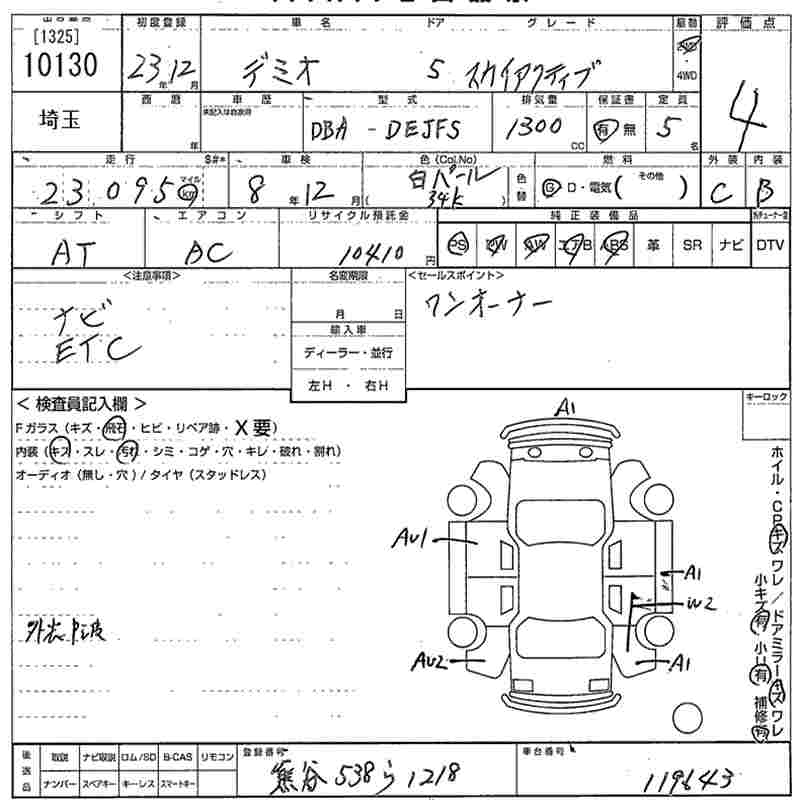 [1325]
10130
初度登録
23年12月
車名 ドア グレード
デミオ 5 スカイアクティブ
駆動
2WD
・
4WD
評価点
4
埼玉
西暦
年
車歴
未記入は自家用
型式
DBA - DEJFS
排気量
1300 CC
保証書
有 無
定員
5 名
走行
23,095
マイル
km
S#*
車検
8年12月
色(Col.No)
白パール
( 34K )
色替
燃料
G D・電気( その他 )
外装
C
内装
B
シフト
AT
エアコン
AC
リサイクル預託金
10410円
純正装備品
PS PW AW エアB ABS 革 SR ナビ DTV
<注意事項>
ナビ
ETC
名変期限
月 日
輸入車
ディーラー・並行
左H ・ 右H
<セールスポイント>
ワンオーナー
<検査員記入欄>
Fガラス(キズ・飛石・ヒビ・リペア跡・X要)
内装(キズ・スレ・汚れ・シミ・コゲ・穴・キレ・破れ・割れ)
オーディオ(無し・穴)/タイヤ(スタッドレス)
キーロック
A1
AU1
A1
W2
AU2
A1
ホイル・CPキズ ワレ/ドアミラーキズ ワレ
小キズ有 小U有 補修有
後送品
取説 ナビ取説 ロム/SD B-CAS リモコン
ナンバー スペアキー キーレス スマートキー
登録番号
熊谷 538 ら 1218
車台番号
119643